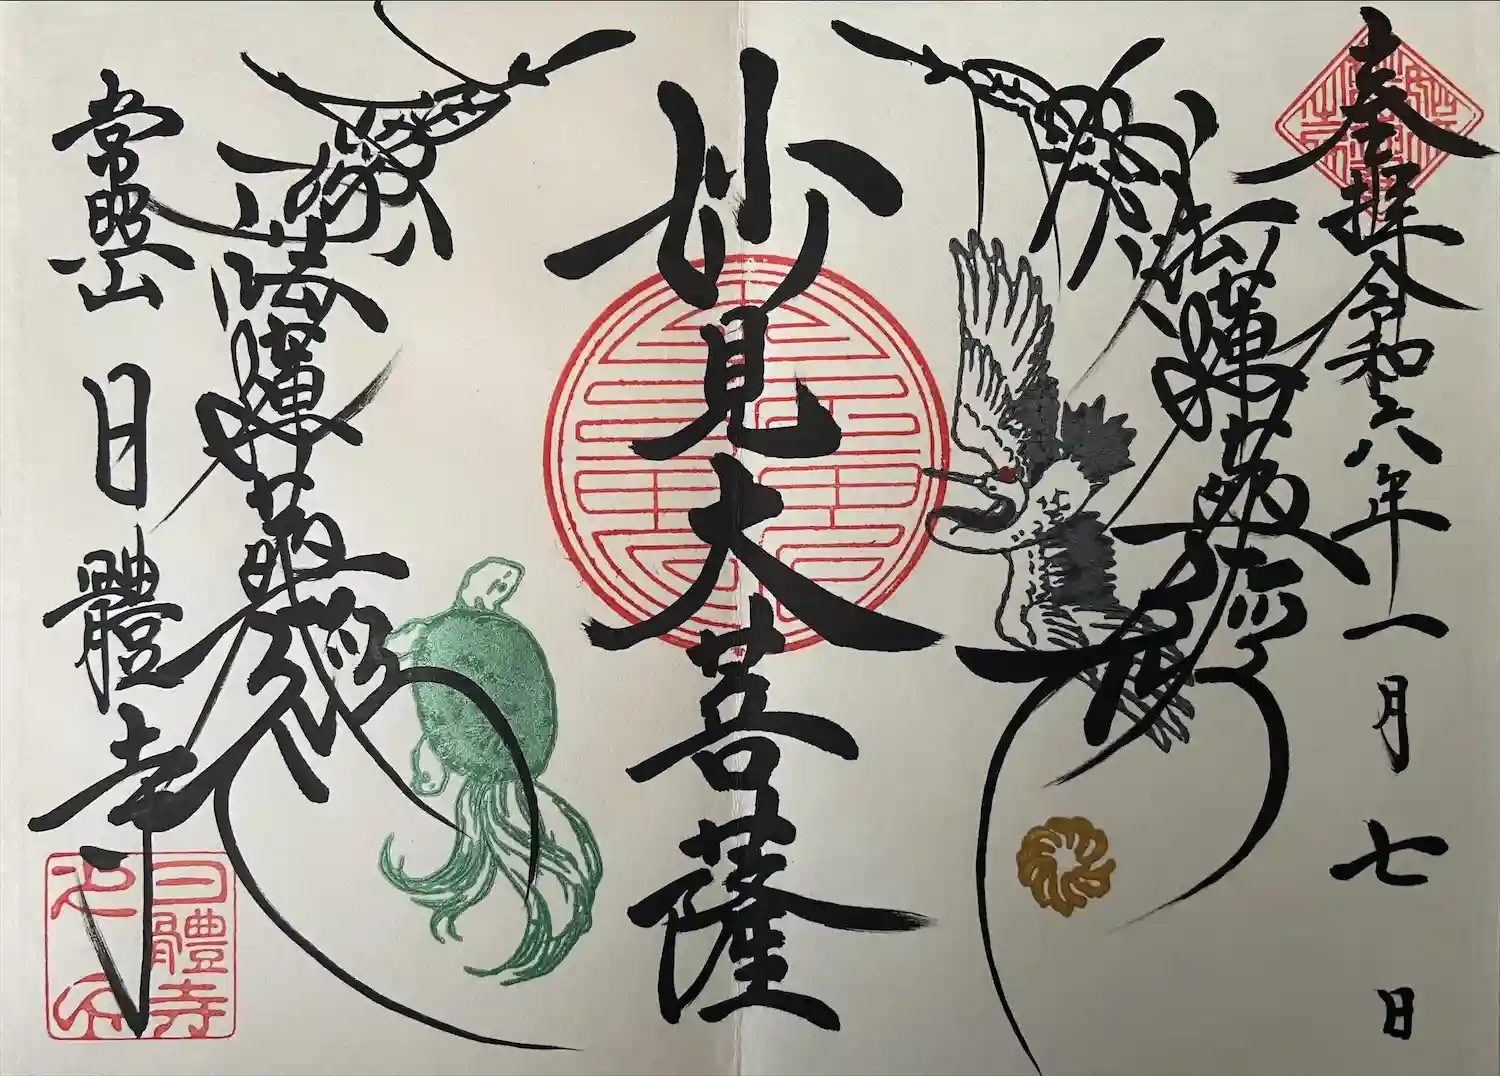 奉拝 令和六年一月七日
南無妙法蓮華經
妙見大菩薩
南無妙法蓮華經
常照山 日體寺
日體寺之印